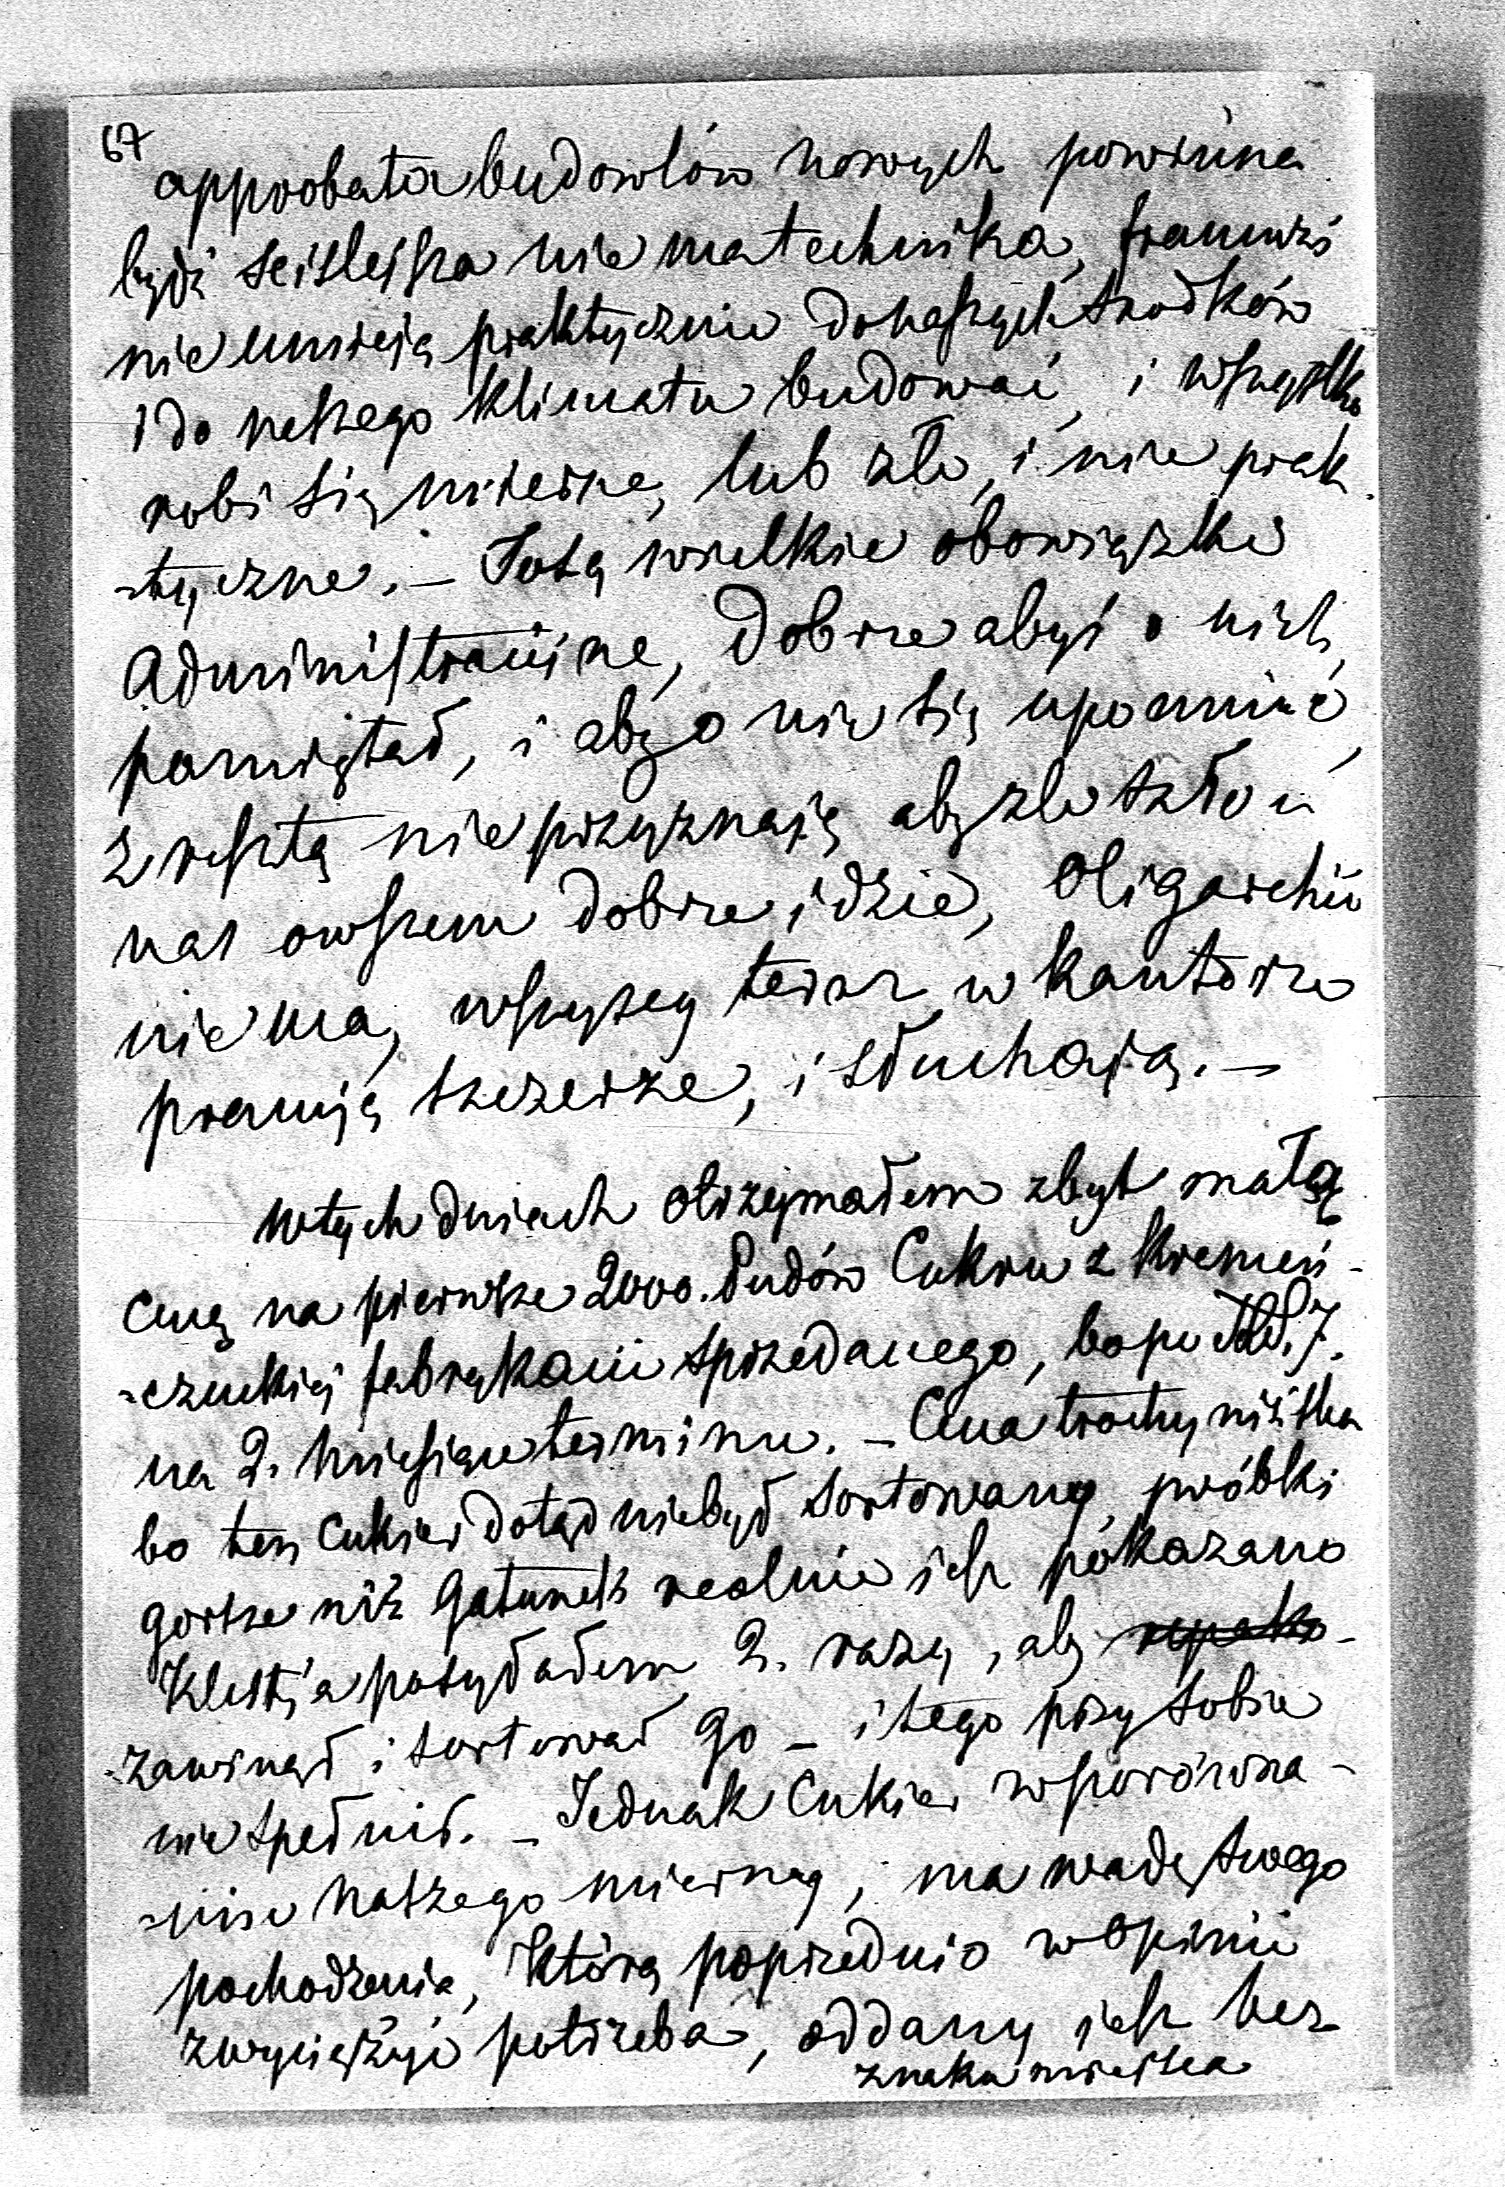 67
approbata budowlów nowych powinna
bydź scisleisza nie ma technika, francuzi
nie umieją praktycznie do naszych srodków
i do naszego klimatu budować, i wszystko
robi się mierne, lub złe, i nie prak
-tyczne. — To są wielkie obowiązki
Administracijne, Dobrze abyś o nich
pamiętał, i aby o nie się upominać,
zresztą nie przyznają aby zle szło u
nas owszem dobrze idzie, Oligarchii
nie ma, wszyscy teraz w kantorze
pracują szczerze, i słuchają. —
w tych dniach otrzymałem zbyt małą
cenę na pierwsze 2000. Pudów Cukru z Kremeń-
-czuckiej sprzedanego, bo po
na 2. miesiące terminu. — Cena trochy niższa
bo ten Cukier dotąd niebył sortowany, próbki
gorsze niż Gatunek realnie jest pokazano
posyłałem 2. razy, aby
zawinął i sortował go — i tego przy sobie
nie spełnił. — Jednak Cukier w porówna-
-niu naszego mierny, ma wadę swego
pochodzenia, którą poprzednio w opinii
zwyciężyć potrzeba, oddany jest bez
znaku miejsca